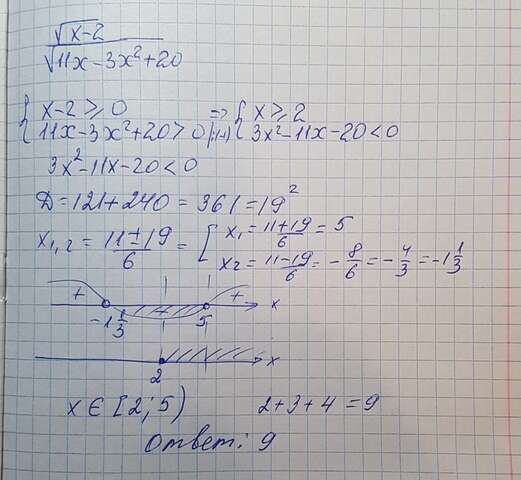 √x-2
√11x-3x²+20
{ x-2≥0 => { x≥2
11x-3x²+20>0 |·(-1) 3x²-11x-20<0
3x²-11x-20<0
D=121+240=361=19²
x₁,₂ = 11±19/6 = [ x₁=11+19/6=5
x₂=11-19/6=-8/6=-4/3=-1 1/3
+ + + x
-1 1/3 5
x
2
x∈[2;5) 2+3+4=9
Ответ: 9